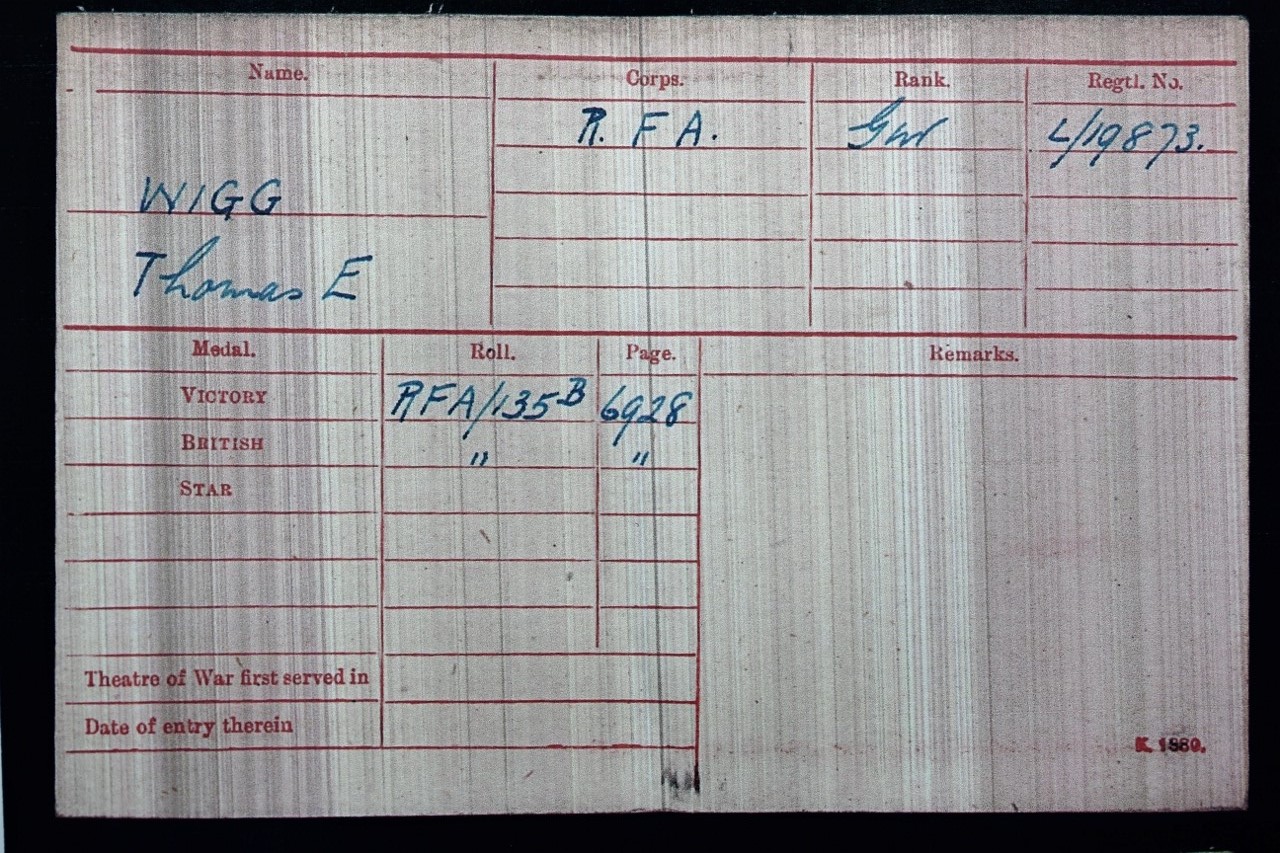 Name. Corps. Rank. Regtl. No.
R. F A. Gnr L/19873.
WIGG
Thomas E
Medal. Roll. Page. Remarks.
VICTORY RFA/135B 6928
BRITISH " "
STAR
Theatre of War first served in
Date of entry therein
K. 1380.